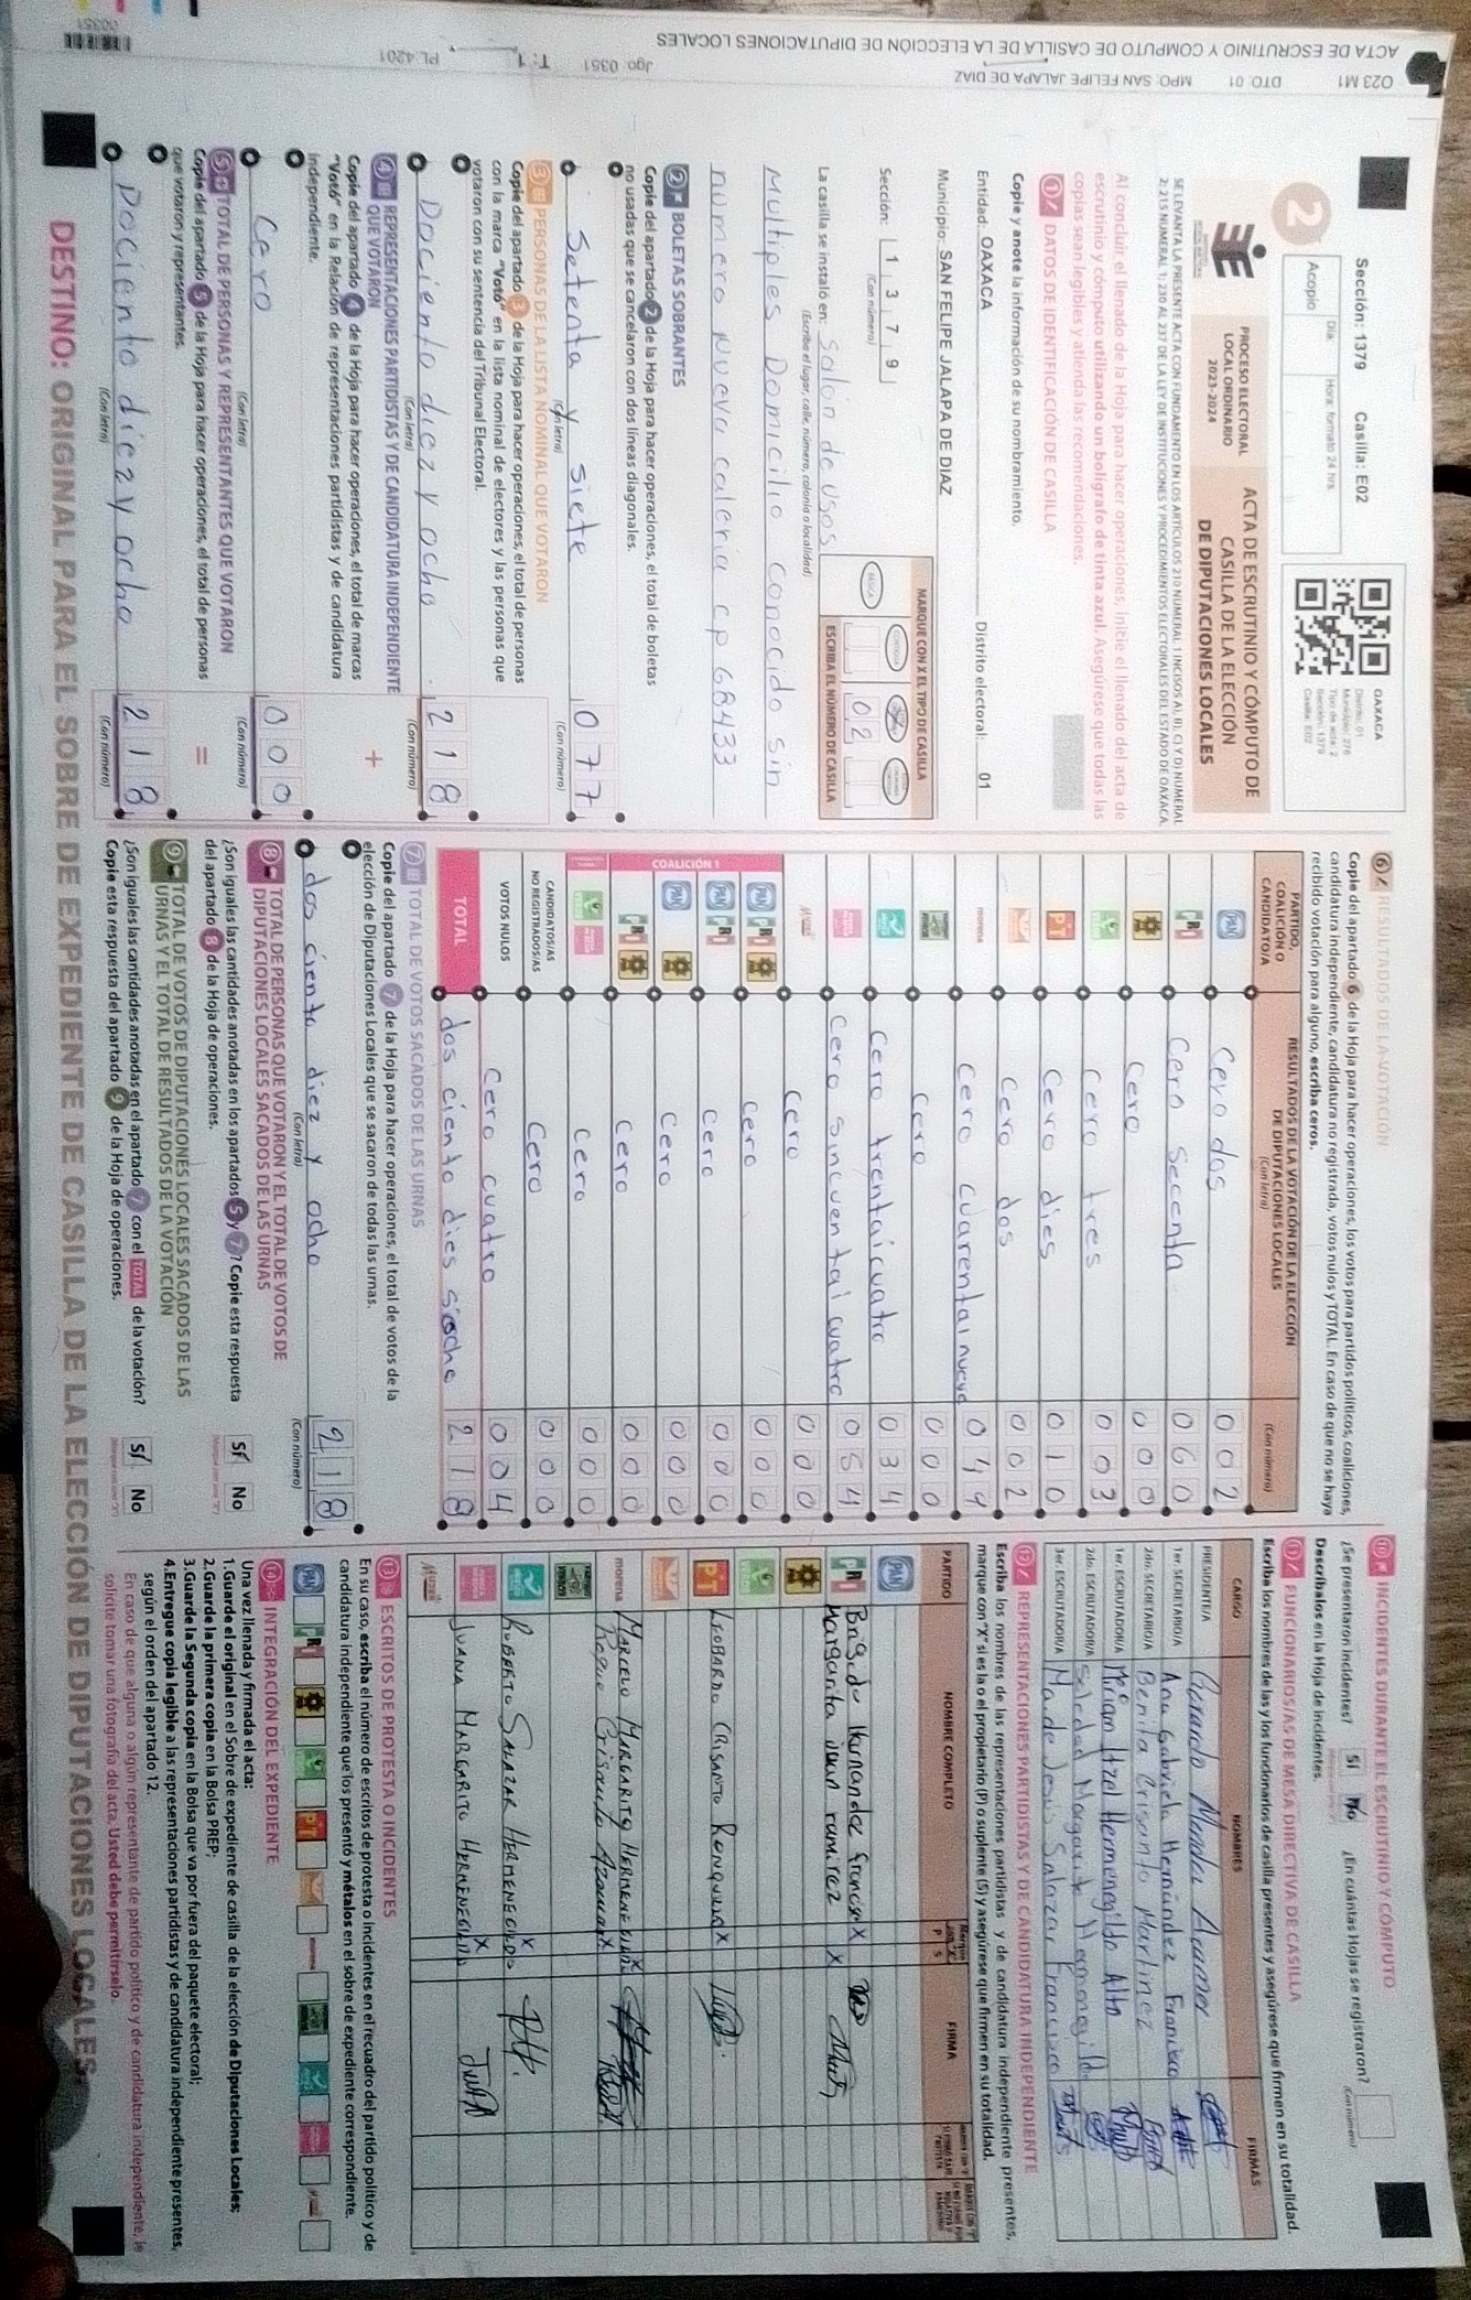 Sección: 1379 Casilla: E02
2
Acopio
Día:
Hora: formato 24 hrs.
OAXACA
Distrito: 01
Municipio: 276
Tipo de acta: 2
Sección: 1379
Casilla: E02
PROCESO ELECTORAL
LOCAL ORDINARIO
2023-2024
ACTA DE ESCRUTINIO Y CÓMPUTO DE
CASILLA DE LA ELECCIÓN
DE DIPUTACIONES LOCALES
SE LEVANTA LA PRESENTE ACTA CON FUNDAMENTO EN LOS ARTÍCULOS 210 NUMERAL 1 INCISOS A), B), C) Y D) NUMERAL
2; 215 NUMERAL 1; 230 AL 237 DE LA LEY DE INSTITUCIONES Y PROCEDIMIENTOS ELECTORALES DEL ESTADO DE OAXACA.
Al concluir el llenado de la Hoja para hacer operaciones, inicie el llenado del acta de
escrutinio y cómputo utilizando un bolígrafo de tinta azul. Asegúrese que todas las
copias sean legibles y atienda las recomendaciones.
1 DATOS DE IDENTIFICACIÓN DE CASILLA
Copie y anote la información de su nombramiento.
Entidad: OAXACA Distrito electoral: 01
Municipio: SAN FELIPE JALAPA DE DIAZ
Sección: 1 3 7 9
(Con número)
MARQUE CON X EL TIPO DE CASILLA
BÁSICA
ESCRIBA EL NÚMERO DE CASILLA
02
La casilla se instaló en: salón de usos
(Escriba el lugar, calle, número, colonia o localidad)
Multiples Domicilio conocido sin
numero Nueva caleria cp 68433
2 BOLETAS SOBRANTES
Copie del apartado 2 de la Hoja para hacer operaciones, el total de boletas
no usadas que se cancelaron con dos líneas diagonales.
setenta y siete 077
(Con letra) (Con número)
3 PERSONAS DE LA LISTA NOMINAL QUE VOTARON
Copie del apartado 3 de la Hoja para hacer operaciones, el total de personas
con la marca "Votó" en la lista nominal de electores y las personas que
votaron con su sentencia del Tribunal Electoral.
Dociento diez y ocho 218
(Con letra) (Con número)
4 REPRESENTACIONES PARTIDISTAS Y DE CANDIDATURA INDEPENDIENTE
QUE VOTARON
Copie del apartado 4 de la Hoja para hacer operaciones, el total de marcas
"Votó" en la Relación de representaciones partidistas y de candidatura
independiente.
+
Cero 000
(Con letra) (Con número)
5 TOTAL DE PERSONAS Y REPRESENTANTES QUE VOTARON
Copie del apartado 5 de la Hoja para hacer operaciones, el total de personas
que votaron y representantes.
=
Dociento diez y ocho 218
(Con letra) (Con número)
6 RESULTADOS DE LA VOTACIÓN
Copie del apartado 6 de la Hoja para hacer operaciones, los votos para partidos políticos, coaliciones,
candidatura independiente, candidatura no registrada, votos nulos y TOTAL. En caso de que no se haya
recibido votación para alguno, escriba ceros.
PARTIDO,
COALICIÓN O
CANDIDATO/A
RESULTADOS DE LA VOTACIÓN DE LA ELECCIÓN
DE DIPUTACIONES LOCALES
(Con letra) (Con número)
PAN Cero dos 002
PRI Cero Secenta 060
Cero 000
cero tres 003
PT Cero dies 010
Cero dos 002
morena Cero cuarentai nueve 049
Cero 000
Cero trentaicuatro 034
Cero sincuentai cuatro 054
Cero 000
COALICIÓN 1
PAN PRI Cero 000
PAN PRI Cero 000
PAN Cero 000
PRI Cero 000
Cero 000
CANDIDATOS/AS
NO REGISTRADOS/AS Cero 000
VOTOS NULOS Cero cuatro 004
TOTAL 218
7 TOTAL DE VOTOS SACADOS DE LAS URNAS
Copie del apartado 7 de la Hoja para hacer operaciones, el total de votos de la
elección de Diputaciones Locales que se sacaron de todas las urnas.
dos ciento diez y ocho 218
(Con letra) (Con número)
8 TOTAL DE PERSONAS QUE VOTARON Y EL TOTAL DE VOTOS DE
DIPUTACIONES LOCALES SACADOS DE LAS URNAS
¿Son iguales las cantidades anotadas en los apartados 5 y 7? Copie esta respuesta
del apartado 8 de la Hoja de operaciones.
SÍ No
9 TOTAL DE VOTOS DE DIPUTACIONES LOCALES SACADOS DE LAS
URNAS Y EL TOTAL DE RESULTADOS DE LA VOTACIÓN
¿Son iguales las cantidades anotadas en el apartado 7 con el TOTAL de la votación?
Copie esta respuesta del apartado 9 de la Hoja de operaciones.
SÍ No
10 INCIDENTES DURANTE EL ESCRUTINIO Y CÓMPUTO
¿Se presentaron incidentes? SÍ No ¿En cuántas Hojas se registraron?
(Con número)
Descríbalos en la Hoja de incidentes.
11 FUNCIONARIOS/AS DE MESA DIRECTIVA DE CASILLA
Escriba los nombres de las y los funcionarios de casilla presentes y asegúrese que firmen en su totalidad.
CARGO NOMBRES FIRMAS
PRESIDENTE/A
1er. SECRETARIO/A Ana Gabriela Hernández Francisco
2do. SECRETARIO/A Benita Crisanto Martinez
1er. ESCRUTADOR/A Miriam Itzel Hermenegildo Alto
2do. ESCRUTADOR/A Soledad Margarito Hermenegildo
3er. ESCRUTADOR/A Ma de Jesús Salazar Francisco
12 REPRESENTACIONES PARTIDISTAS Y DE CANDIDATURA INDEPENDIENTE
Escriba los nombres de las representaciones partidistas y de candidatura independiente presentes,
marque con "X" si es la o el propietario (P) o suplente (S) y asegúrese que firmen en su totalidad.
PARTIDO NOMBRE COMPLETO P S FIRMA
PAN Brigido Hernandez francisco X
PRI Margarita Juan ramirez X
PT LEOBARDO CRISANTO RONQUILLO X
MARCELO MARGARITO HERMENEGILDO X
morena Roque Crisanto X
ROBERTO SALAZAR HERMENEGILDO X
JUANA MARGARITO HERMENEGILDO X
13 ESCRITOS DE PROTESTA O INCIDENTES
En su caso, escriba el número de escritos de protesta o incidentes en el recuadro del partido político y de
candidatura independiente que los presentó y métalos en el sobre de expediente correspondiente.
PAN PRI PT morena
14 INTEGRACIÓN DEL EXPEDIENTE
Una vez llenada y firmada el acta:
1.Guarde el original en el Sobre de expediente de casilla de la elección de Diputaciones Locales;
2.Guarde la primera copia en la Bolsa PREP;
3.Guarde la Segunda copia en la Bolsa que va por fuera del paquete electoral;
4.Entregue copia legible a las representaciones partidistas y de candidatura independiente presentes,
según el orden del apartado 12.
En caso de que alguna o algún representante de partido político y de candidatura independiente, le
solicite tomar una fotografía del acta. Usted debe permitírselo.
DESTINO: ORIGINAL PARA EL SOBRE DE EXPEDIENTE DE CASILLA DE LA ELECCIÓN DE DIPUTACIONES LOCALES.
023 M1 DTO: 01 MPO: SAN FELIPE JALAPA DE DIAZ Jgo: 0351 T: 1 PL 4201
ACTA DE ESCRUTINIO Y CÓMPUTO DE CASILLA DE LA ELECCIÓN DE DIPUTACIONES LOCALES
00351